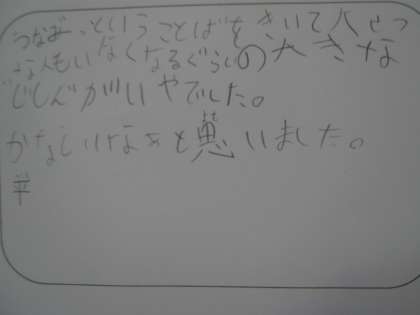 つなぎ、ということばをきいて人々っ
な人もいなくなるぐらいの大きな
じしんがいやでした。
かなしいなぁと思いました。